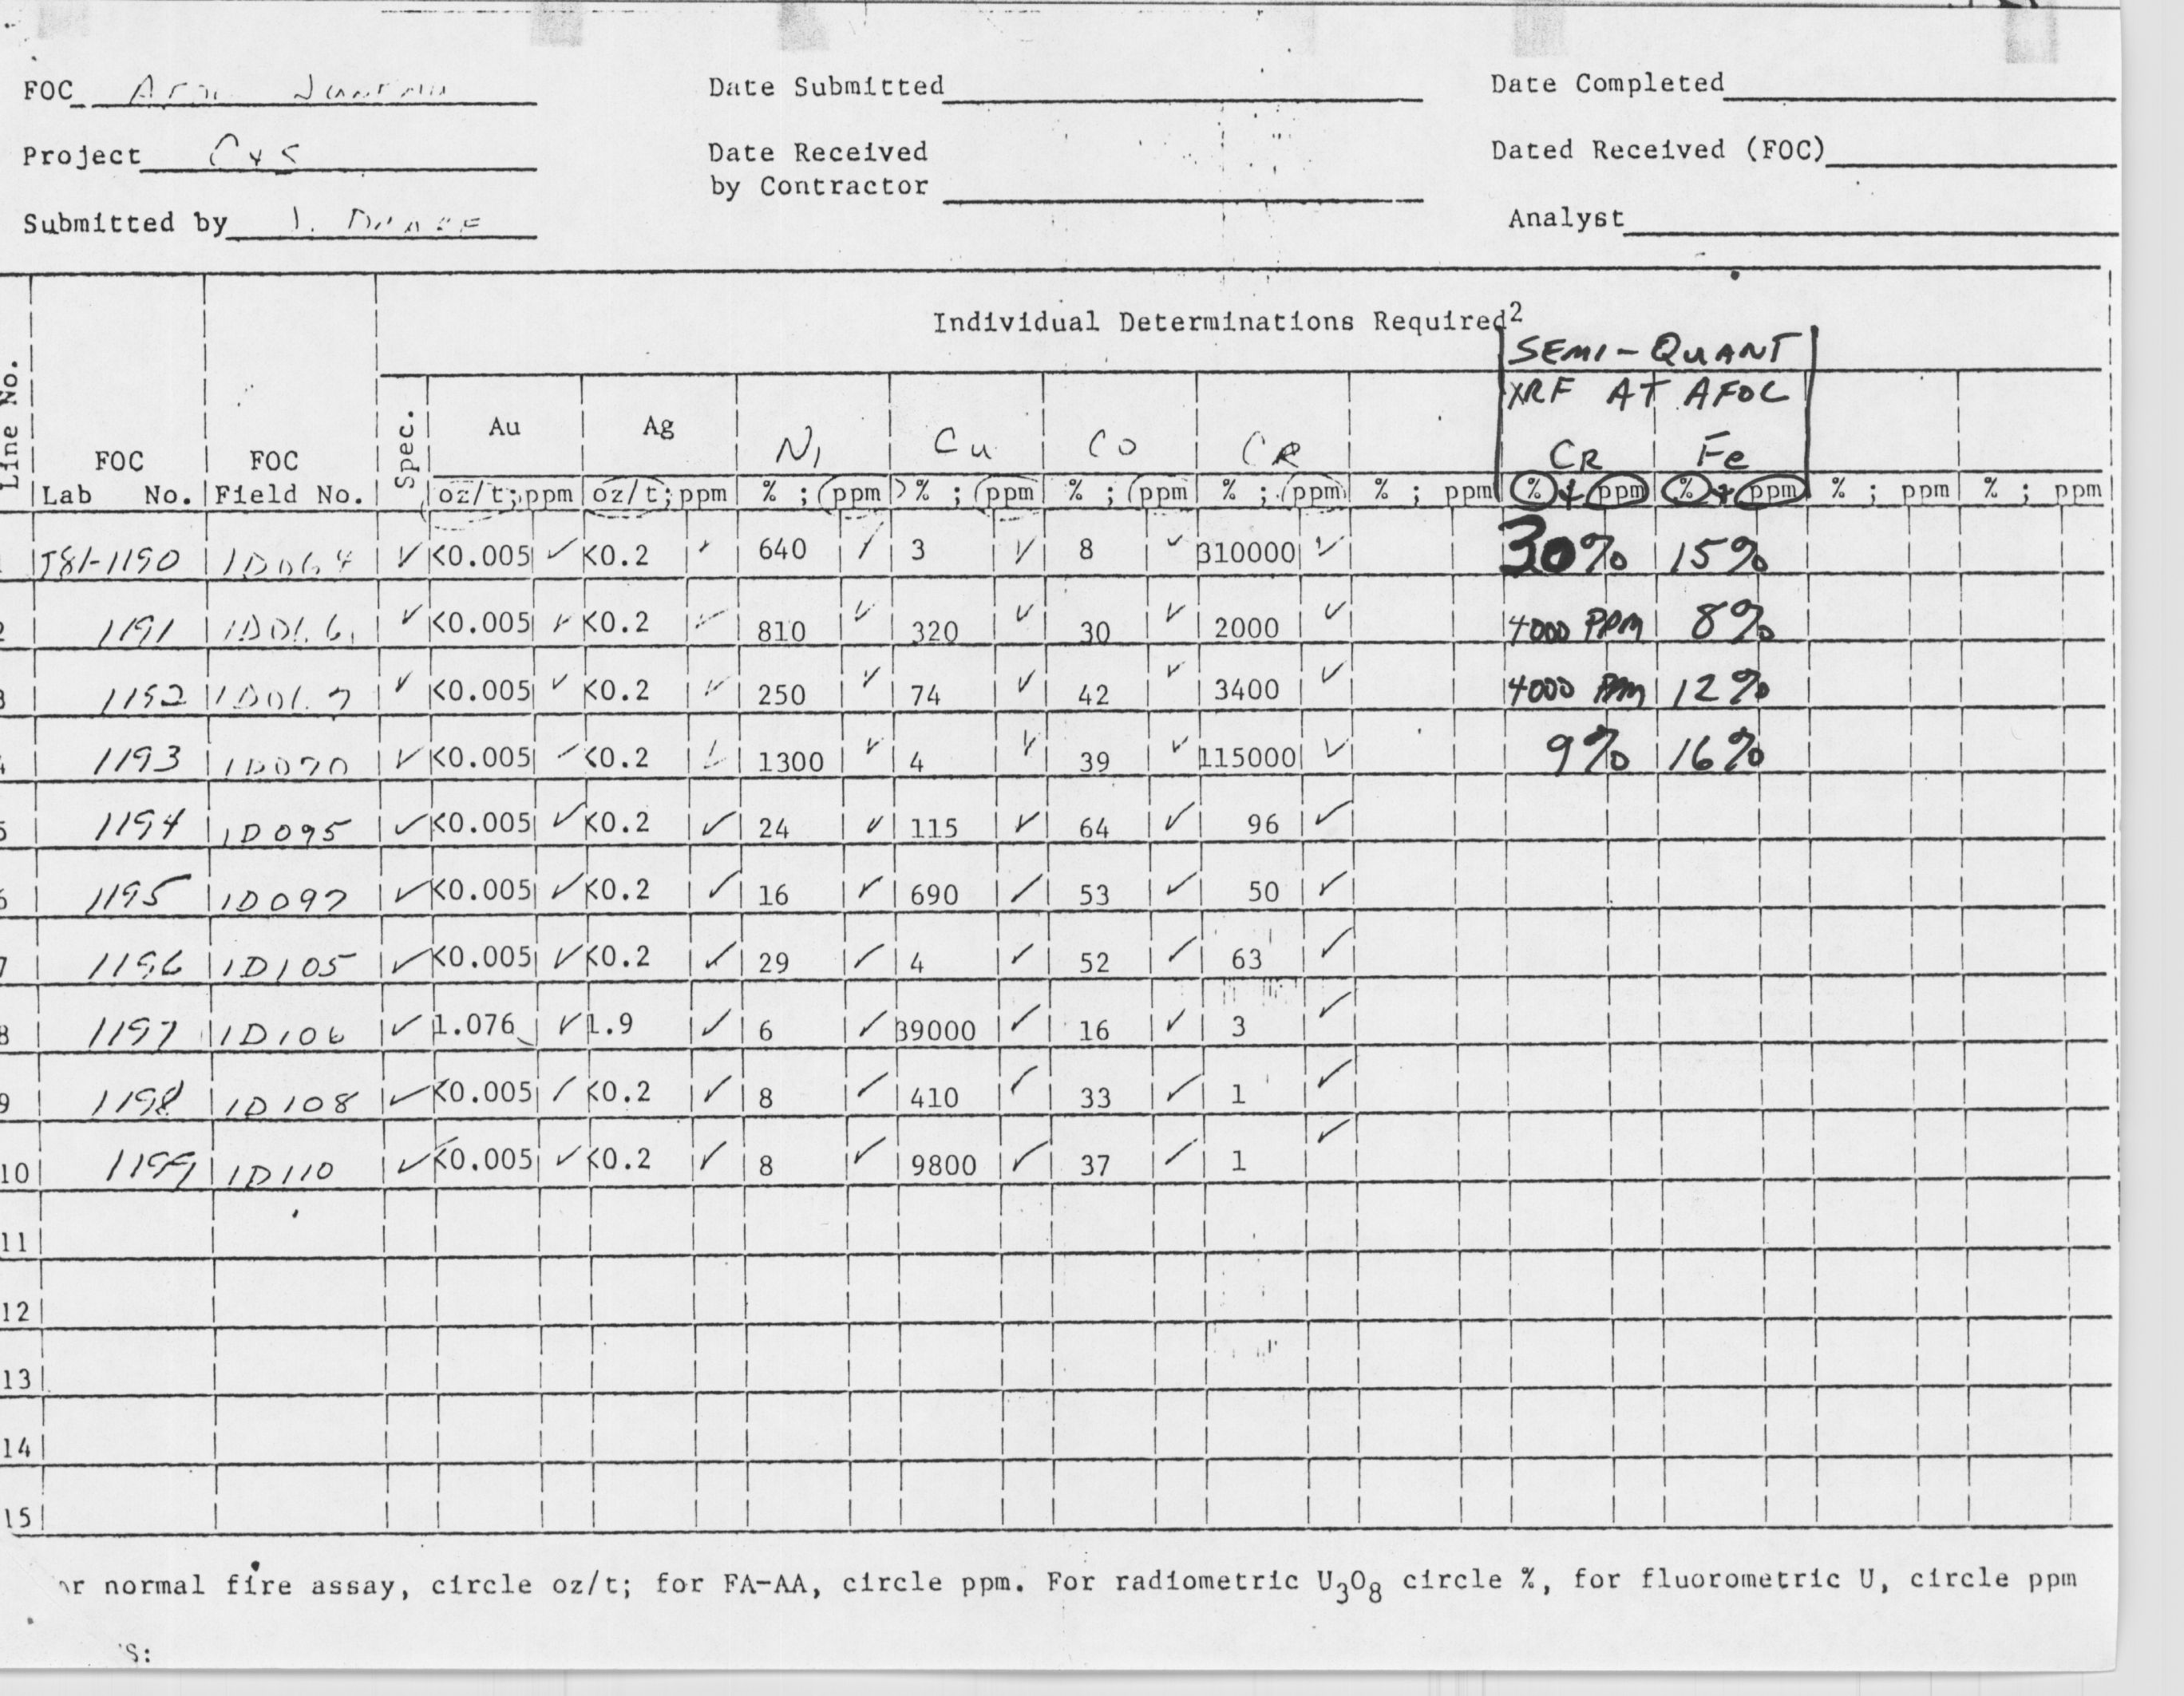 FOC Date Submitted Date Completed
Project Date Received Dated Received (FOC)
by Contractor
Submitted by Analyst
Individual Determinations Required2
SEMI-QUANT
XRF AT AFOC
Line No. FOC FOC Spec. Au Ag Ni Cu Co CR CR Fe
Lab No. Field No. oz/t; ppm oz/t; ppm % ; ppm % ; ppm % ; ppm % ; ppm % ; ppm % + ppm % + ppm % ; ppm % ; ppm
J81-1190 1D064 ✓ <0.005 ✓ <0.2 ✓ 640 ✓ 3 ✓ 8 ✓ 310000 ✓ 30% 15%
2 1191 ✓ <0.005 ✓ <0.2 ✓ 810 ✓ 320 ✓ 30 ✓ 2000 ✓ 4000 PPM 8%
3 1192 ✓ <0.005 ✓ <0.2 ✓ 250 ✓ 74 ✓ 42 ✓ 3400 ✓ 4000 PPM 12%
4 1193 1D090 ✓ <0.005 ✓ <0.2 ✓ 1300 ✓ 4 ✓ 39 ✓ 115000 ✓ 9% 16%
5 1194 1D095 ✓ <0.005 ✓ <0.2 ✓ 24 ✓ 115 ✓ 64 ✓ 96 ✓
6 1195 1D097 ✓ <0.005 ✓ <0.2 ✓ 16 ✓ 690 ✓ 53 ✓ 50 ✓
7 1196 1D105 ✓ <0.005 ✓ <0.2 ✓ 29 ✓ 4 ✓ 52 ✓ 63 ✓
8 1197 1D106 ✓ 1.076 ✓ 1.9 ✓ 6 ✓ 39000 ✓ 16 ✓ 3 ✓
9 1198 1D108 ✓ <0.005 ✓ <0.2 ✓ 8 ✓ 410 ✓ 33 ✓ 1 ✓
10 1199 1D110 ✓ <0.005 ✓ <0.2 ✓ 8 ✓ 9800 ✓ 37 ✓ 1 ✓
11
12
13
14
15
normal fire assay, circle oz/t; for FA-AA, circle ppm. For radiometric U3O8 circle %, for fluorometric U, circle ppm
S: